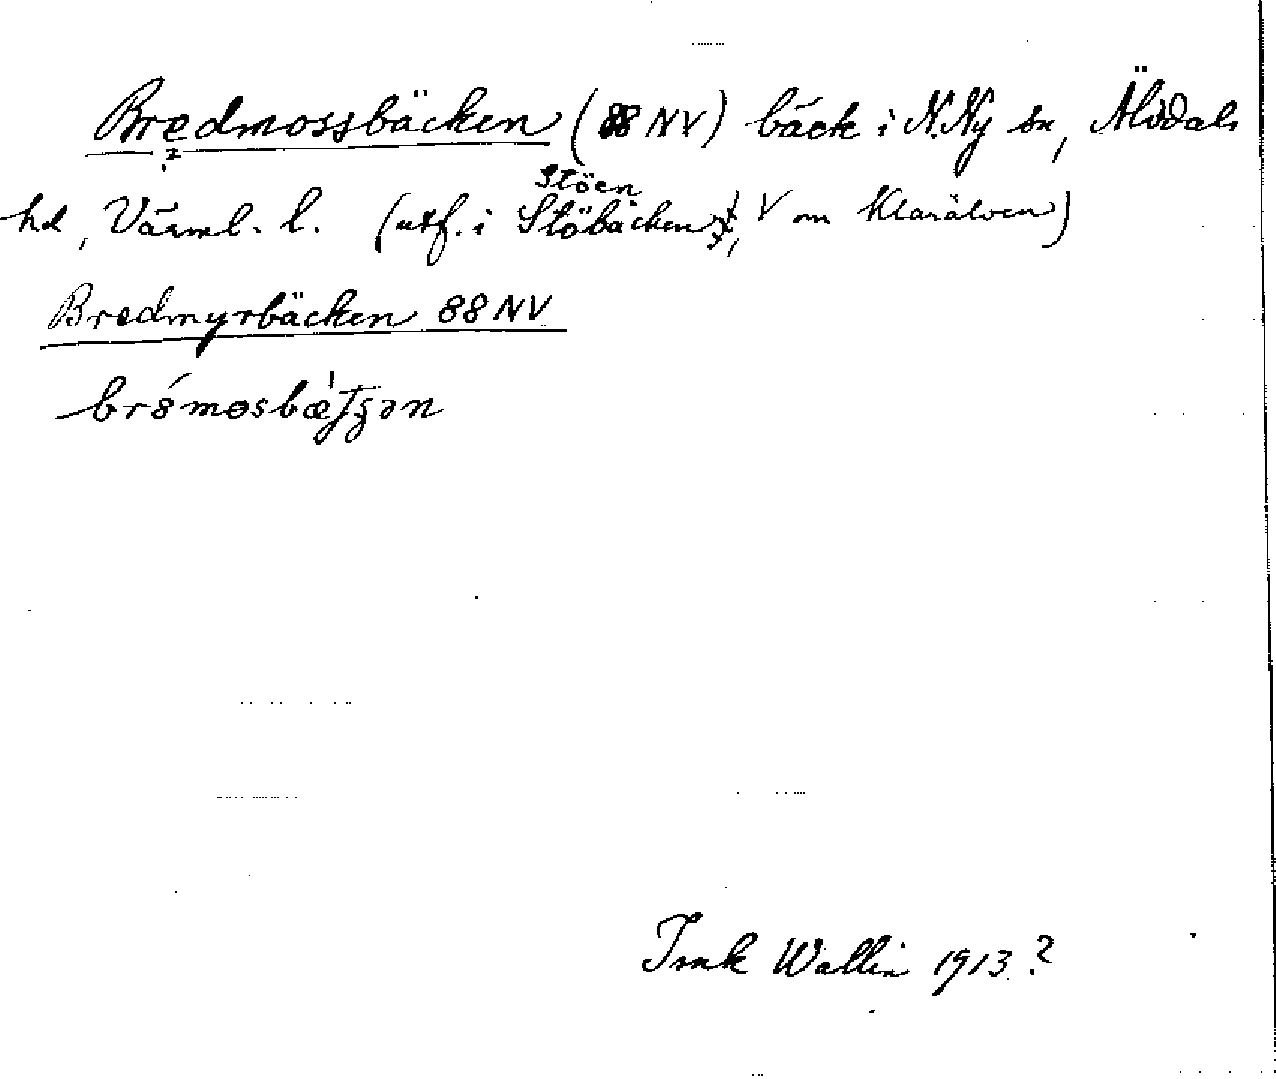 Bredmossbäcken (88 NV) bäck i N. Ny sn, Älvdals
Stöen
hd, Värml. l. (utf. i Stöbäcken, V om Klarälven)
Bredmyrbäcken 88 NV
Isak Wallin 1913 ?